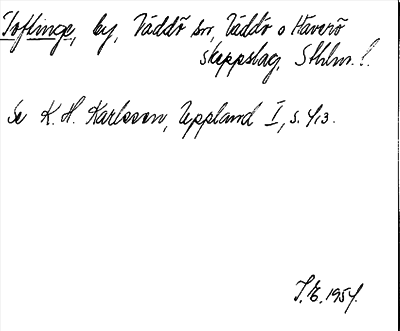 Toftinge, by, Väddö sn, Väddö o Häverö
skeppslag, Sthlm. l.
Se K. H. Karlsson, Uppland I, s. 413.
J. E. 1954.